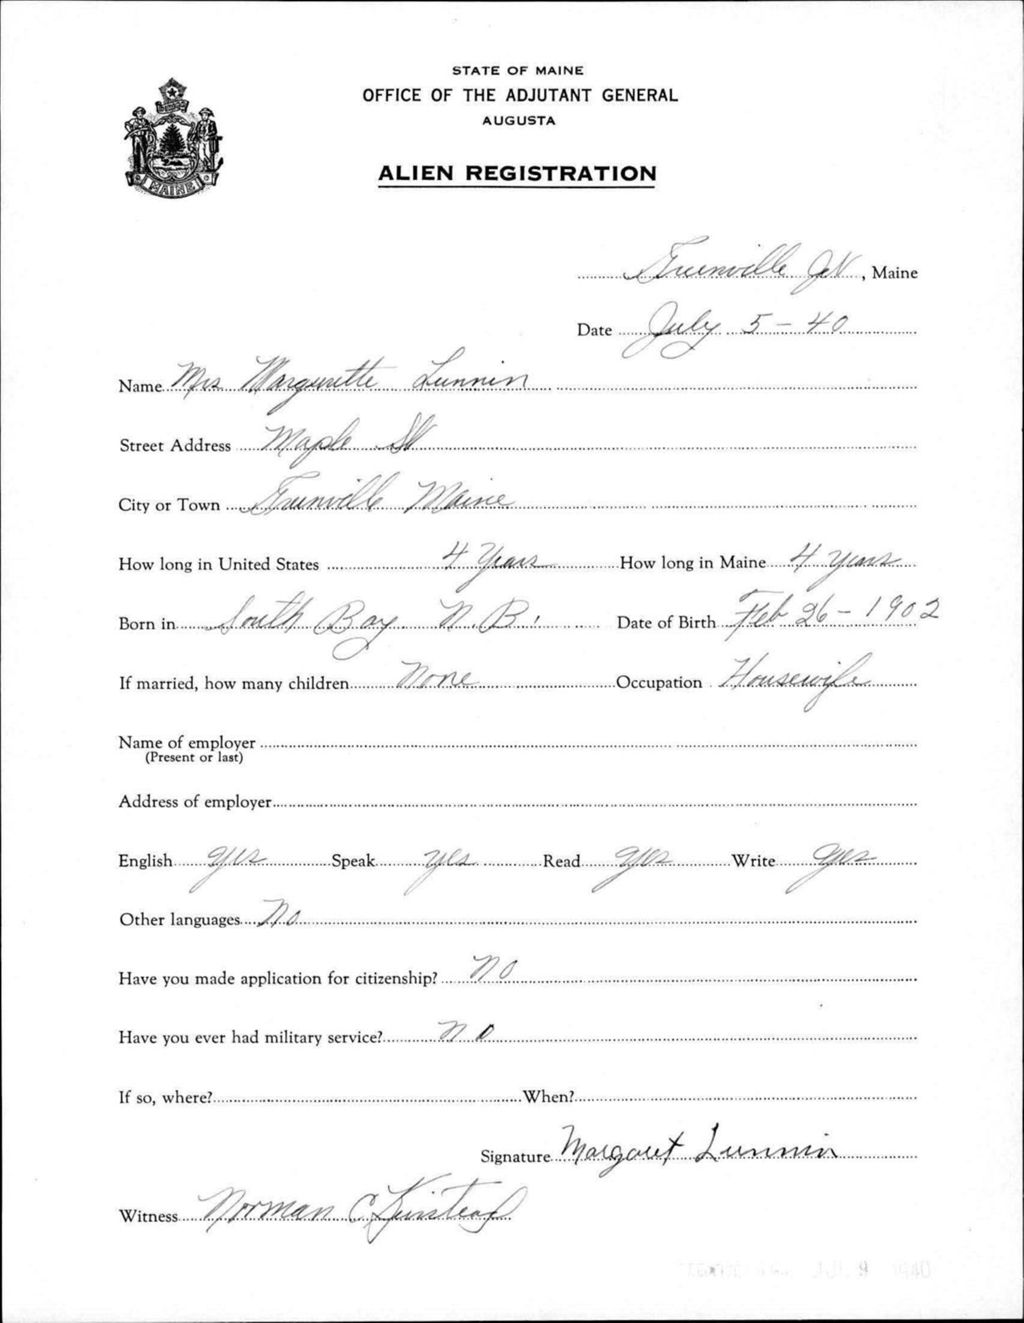 STATE OF MAINE
OFFICE OF THE ADJUTANT GENERAL
AUGUSTA
MAINE
ALIEN REGISTRATION
Greenville Jct, Maine
Date July 5-40
Name Mrs Marguerette Lunnin
Street Address Maple St
City or Town Greenville Maine
How long in United States 4 Years How long in Maine 4 years
Born in South Bay N.B. Date of Birth Feb 26-1902
If married, how many children None Occupation Housewife
Name of employer
(Present or last)
Address of employer
English yes Speak yes Read yes Write yes
Other languages No
Have you made application for citizenship? No
Have you ever had military service? No
If so, where? When?
Signature Margaret Lunnin
Witness Norman C Kinstead